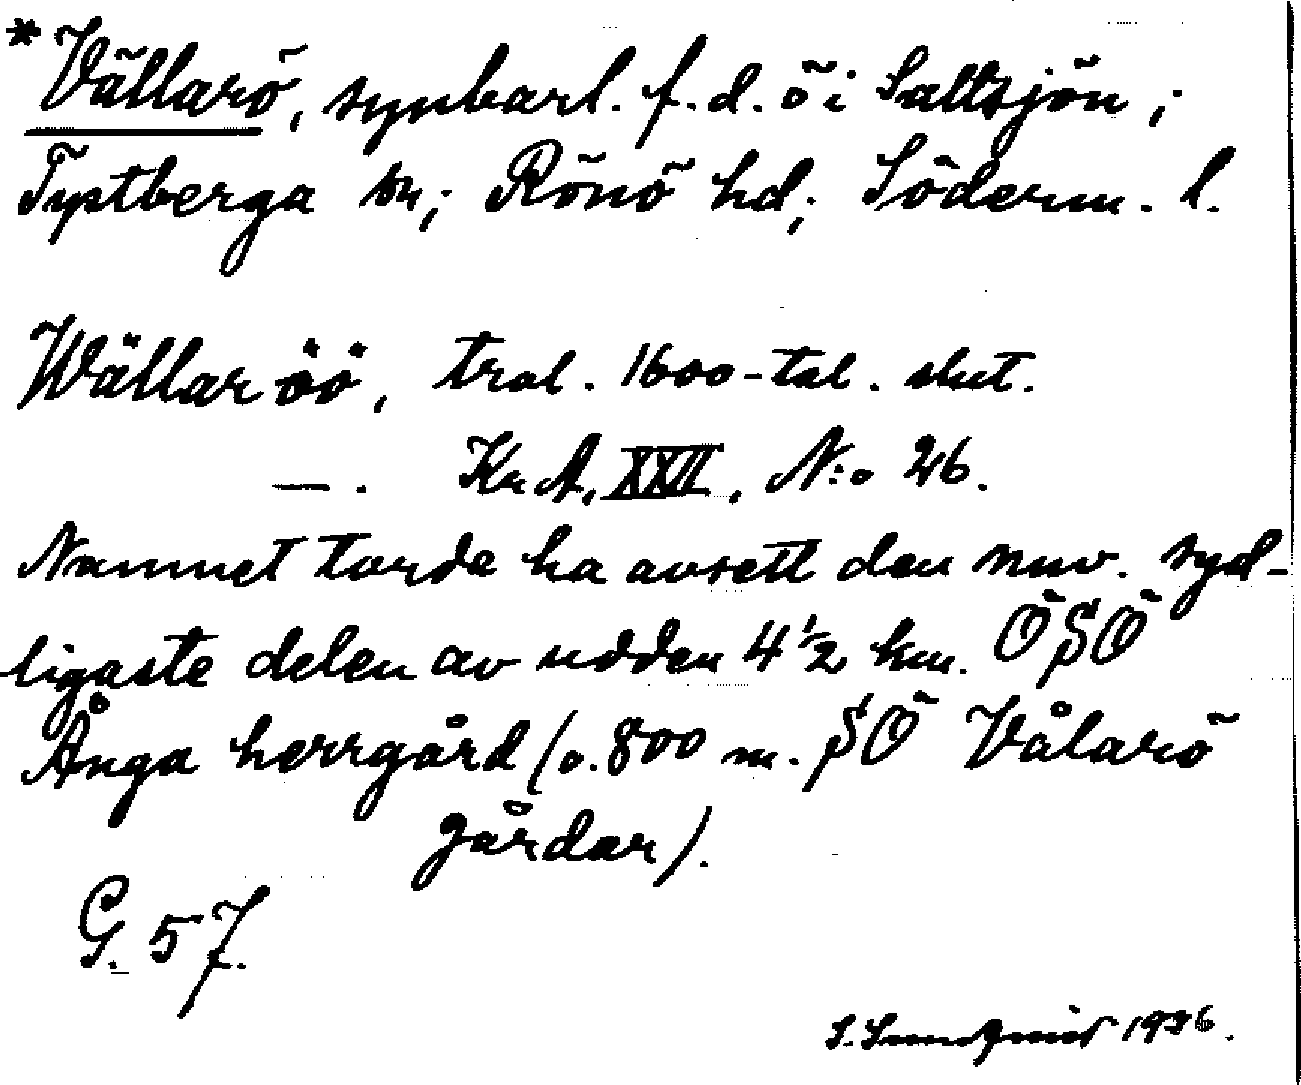 *Vällarö, synbarl. f. d. ö i Saltsjön;
Tystberga sn; Rönö hd; Söderm. l.
Wällar öö, trol. 1600-tal. slut.
—. Kr A, XXVI, N:o 26.
Namnet torde ha avsett den nuv. syd-
ligaste delen av udden 4 1/2 km. ÖSÖ
Ånga herrgård (o. 800 m. SÖ Vålarö
gårdar).
G. 57.
S. Sundqvist 1936.